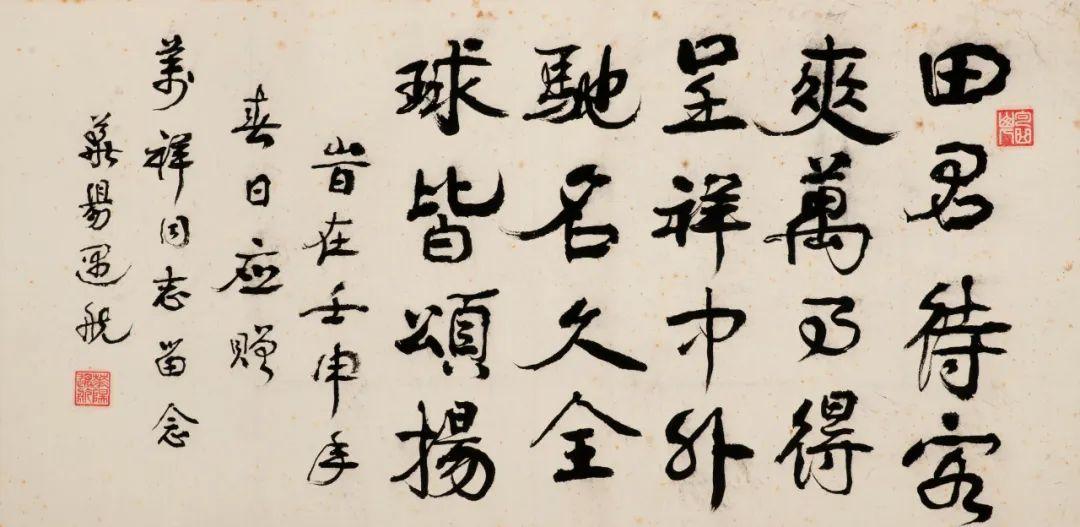 田君待客
爽萬事得
呈祥中外
馳名久全
球皆頌揚
旹在壬申年
春日应贈
萬祥同志留念
楊遇航